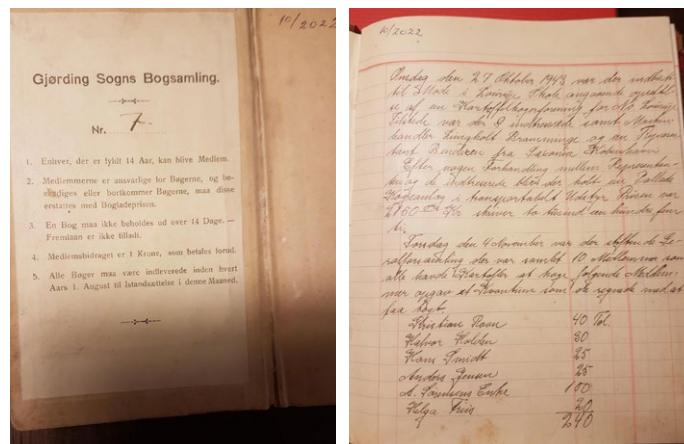 10/2022
Gjørding Sogns Bogsamling.
Nr. 7
1. Enhver, der er fyldt 14 Aar, kan blive Medlem.
2. Medlemmerne er ansvarlige for Bøgerne, og be-
skadiges eller bortkommer Bøgerne, maa disse
erstattes med Bogladeprisen.
3. En Bog maa ikke beholdes ud over 14 Dage. —
Fremlaan er ikke tilladt.
4. Medlemsbidraget er 1 Krone, som betales forud.
5. Alle Bøger maa være indleverede inden hvert
Aars 1. August til Istandsættelse i denne Maaned.
10/2022
Onsdag den 27 Oktober 1943 var der indbudt
til Møde i Skole angaaende oprettel
se af en Kartoffelkogerforening for
var der 8 samt Martin
handler Bramminge og en Repræsen
tant fra København
Efter nogen Forhandling mellem Repræsentan
ten og de blev der købt en
i transportabelt Udstyr Prisen var
2150 Kr skriver to tusind een hundre fem
ti.
Torsdag den 4 November var der stiftende Ge
neralforsamling der var samlet 10 Medlemmer som
alle havde Kartofler at koge følgende Medlem
mer opgav et Kvantum som de regnede med at
faa kogt.
Kristian 40 Td.
Halvor Holden 30
Hans Smidt 25
Anders Jensen 25
A. Enke 100
Helga Friis 20
240